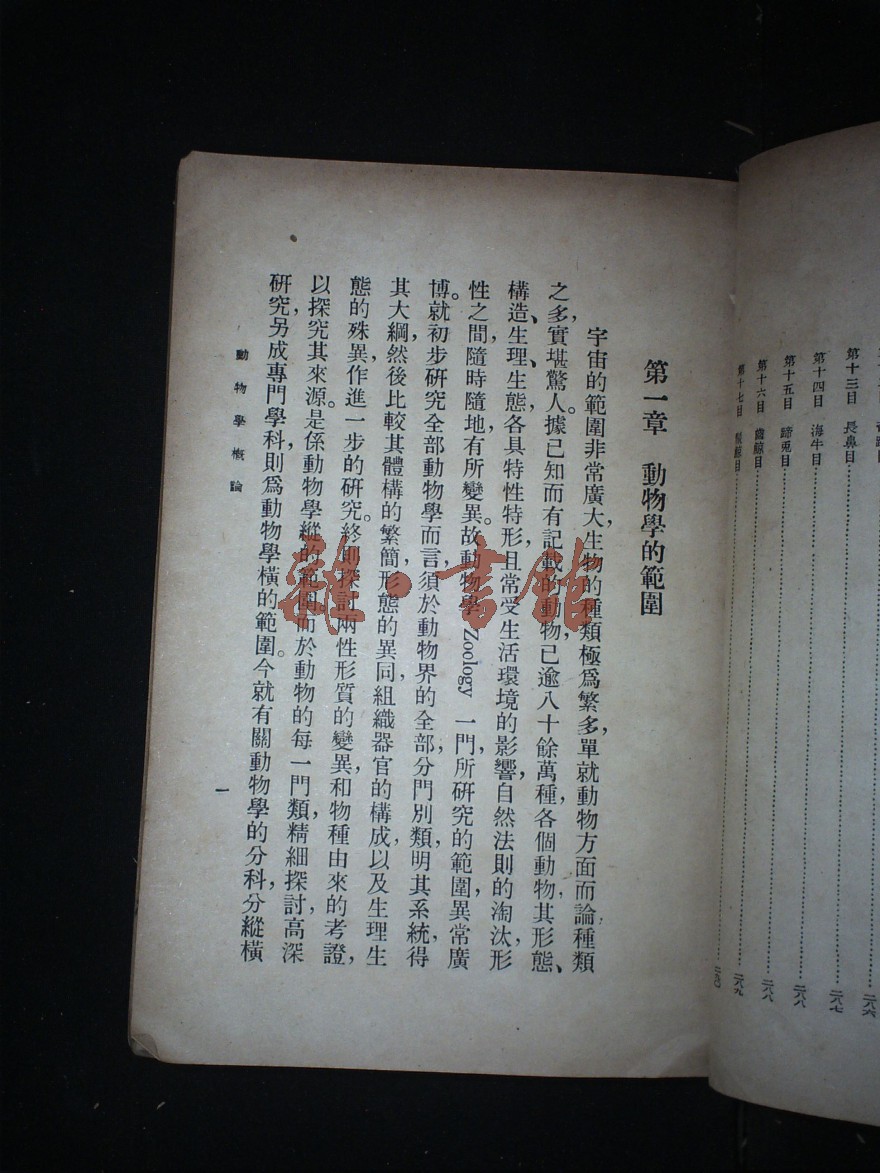 第十三目 長鼻目 二八六
第十四目 海牛目 二八七
第十五目 蹄兎目 二八八
第十六目 齒鯨目 二八八
第十七目 鬚鯨目 二八九
第一章 動物學的範圍
宇宙的範圍非常廣大，生物的種類極爲繁多，單就動物方面而論，種類
之多，實堪驚人。據已知而有記載的動物，已逾八十餘萬種，各個動物其形態、
構造、生理、生態各具特性特形，且常受生活環境的影響，自然法則的淘汰，形
性之間，隨時隨地有所變異。故動物學 Zoology 一門，所研究的範圍，異常廣
博。就初步研究全部動物學而言，須於動物界的全部，分門別類，明其系統，得
其大綱，然後比較其體構的繁簡，形態的異同，組織器官的構成，以及生理生
態的殊異，作進一步的研究。終則探討兩性形質的變異，和物種由來的考證，
以探究其來源。是係動物學縱的範圍，而於動物的每一門類，精細探討，高深
研究，另成專門學科，則爲動物學橫的範圍。今就有關動物學的分科，分縱橫
動物學概論
一
雜·書館